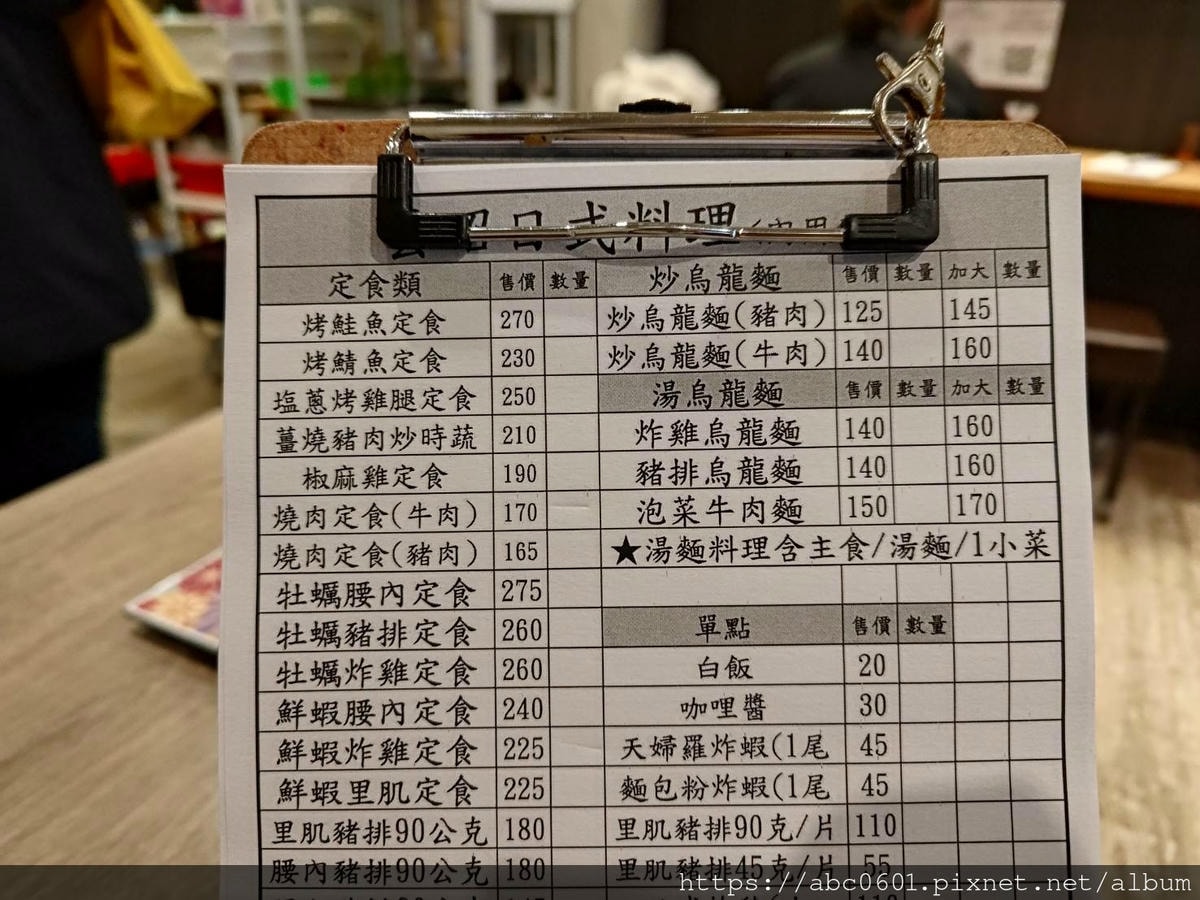 日式料理
定食類 售價 數量
烤鮭魚定食 270
烤鯖魚定食 230
塩蔥烤雞腿定食 250
薑燒豬肉炒時蔬 210
椒麻雞定食 190
燒肉定食(牛肉) 170
燒肉定食(豬肉) 165
牡蠣腰內定食 275
牡蠣豬排定食 260
牡蠣炸雞定食 260
鮮蝦腰內定食 240
鮮蝦炸雞定食 225
鮮蝦里肌定食 225
里肌豬排90公克 180
腰內豬排90公克 180
炒烏龍麵 售價 數量 加大 數量
炒烏龍麵(豬肉) 125 145
炒烏龍麵(牛肉) 140 160
湯烏龍麵 售價 數量 加大 數量
炸雞烏龍麵 140 160
豬排烏龍麵 140 160
泡菜牛肉麵 150 170
★湯麵料理含主食/湯麵/1小菜
單點 售價 數量
白飯 20
咖哩醬 30
天婦羅炸蝦(1尾 45
麵包粉炸蝦(1尾 45
里肌豬排90克/片 110
里肌豬排45克/片 55
https://abc0601.pixnet.net/album